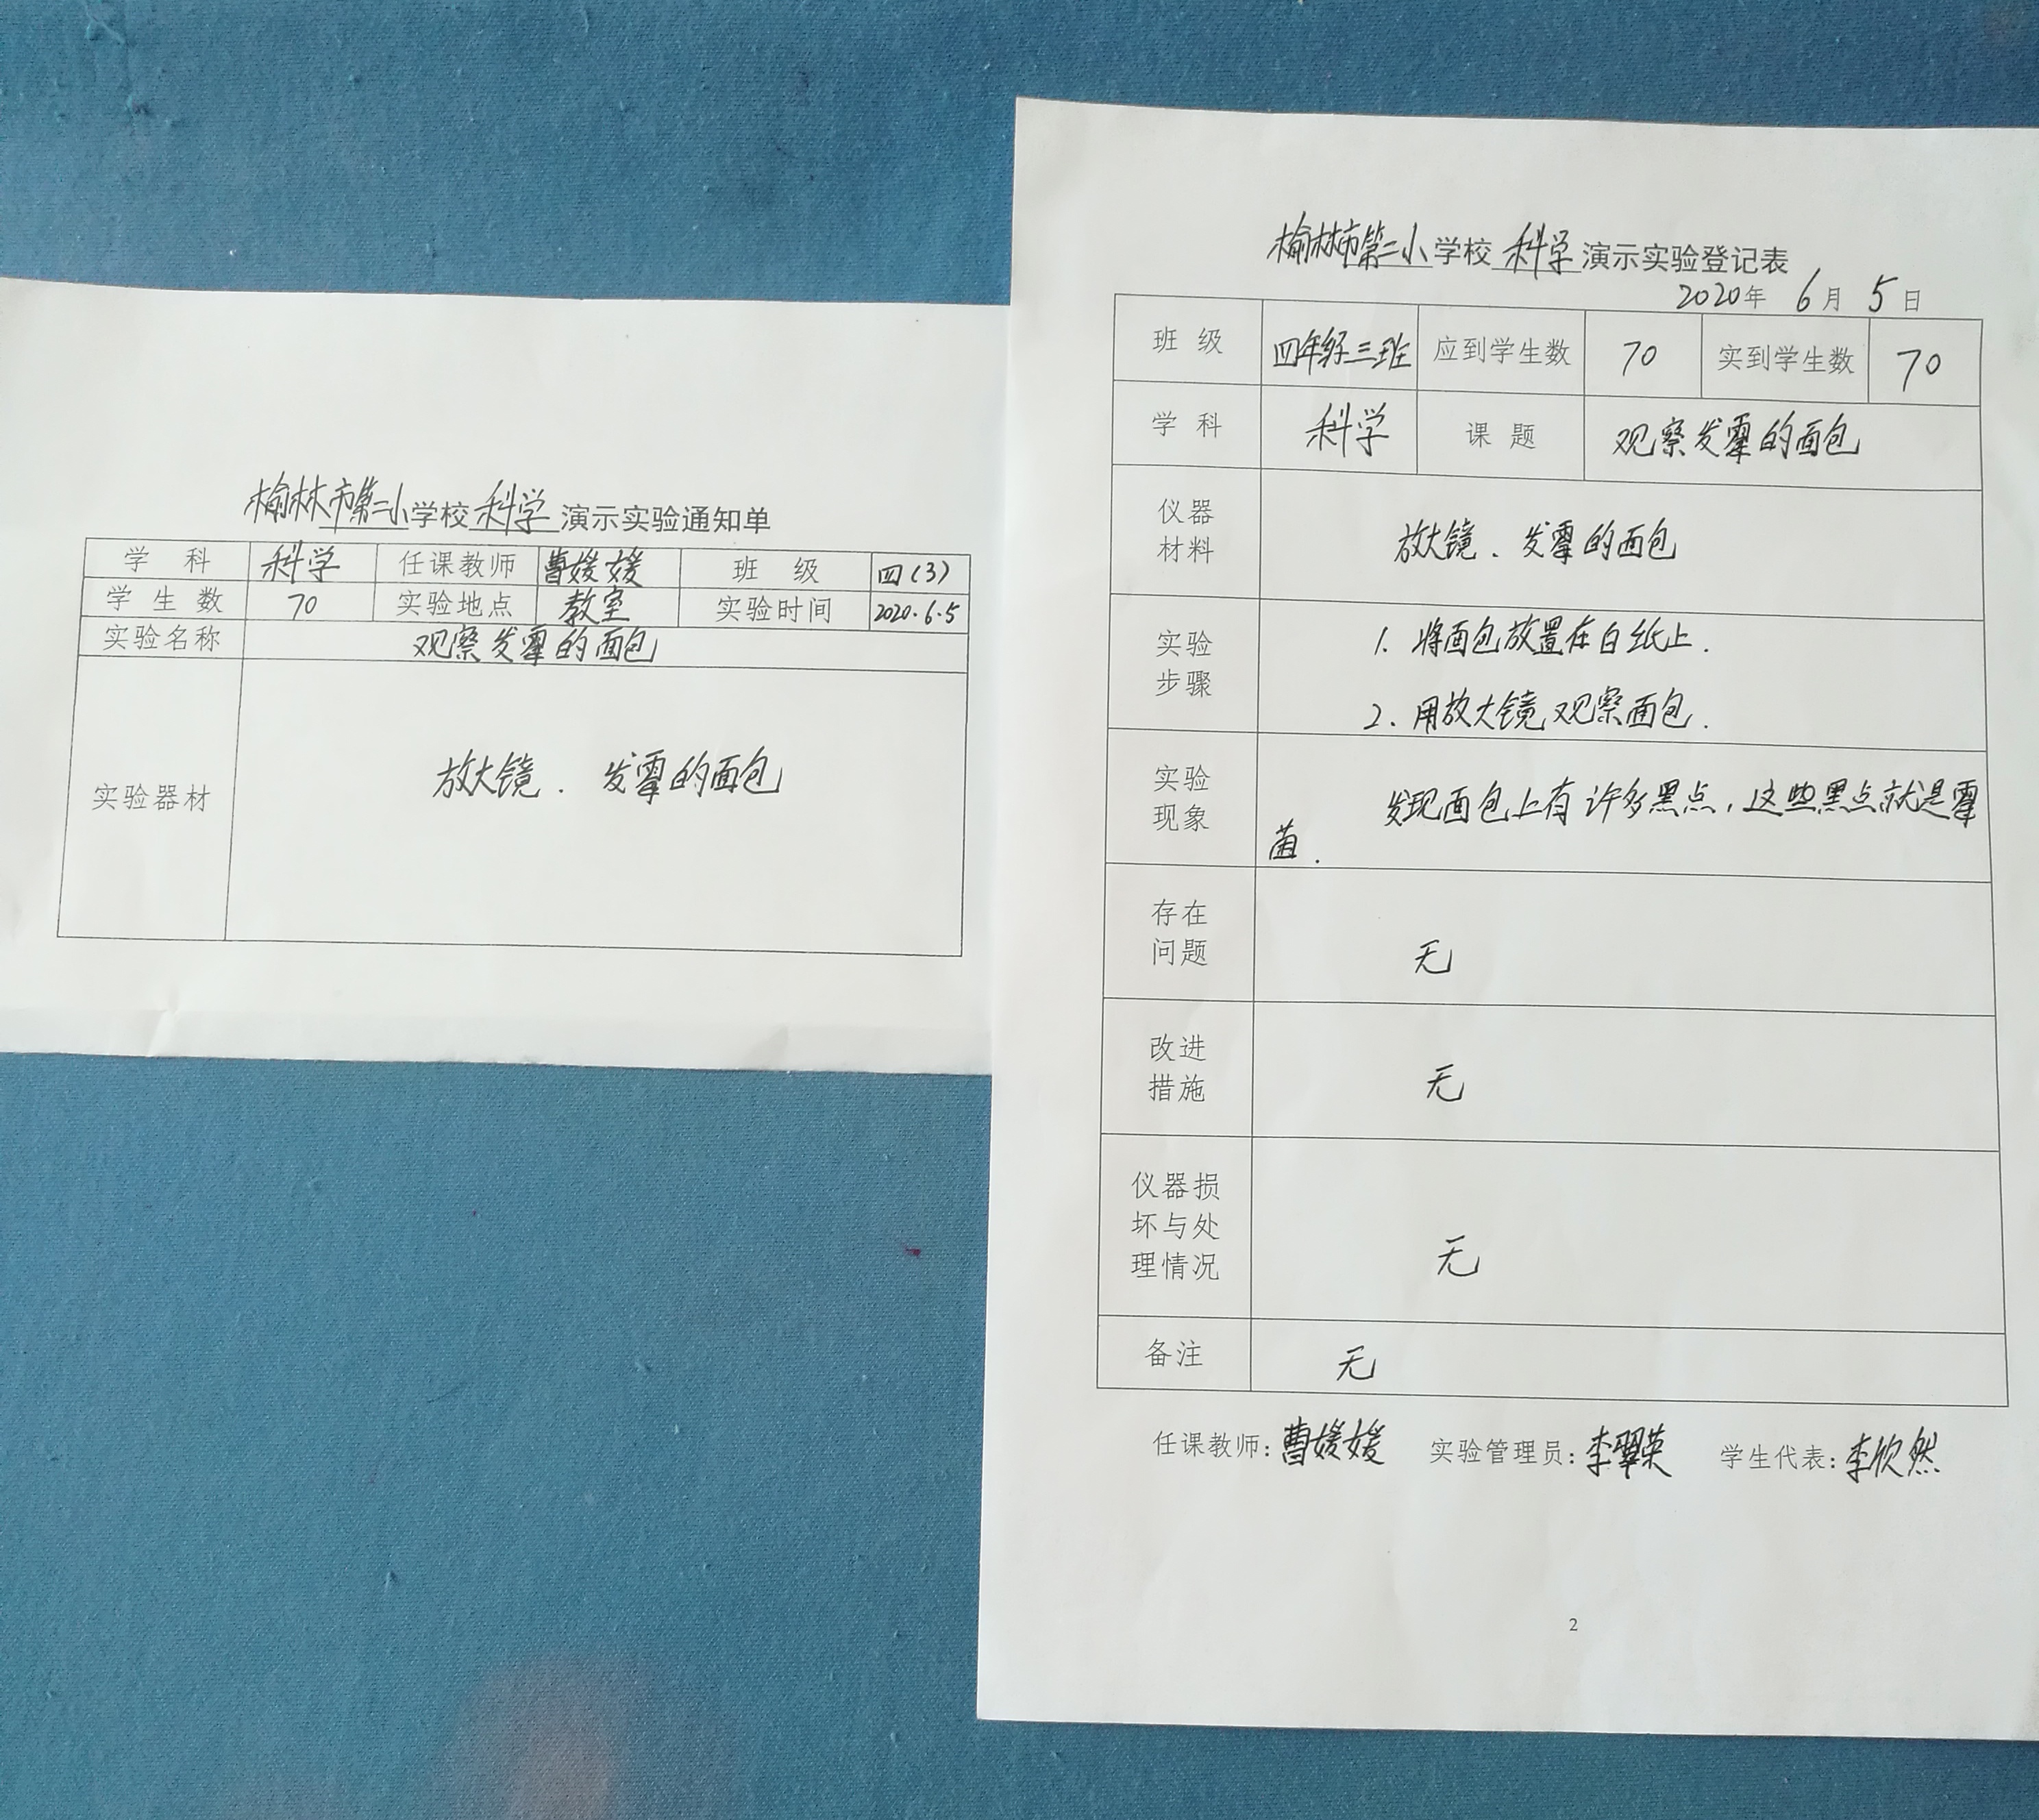 榆林市第二小学校科学演示实验通知单
学 科 科学 任课教师 曹媛媛 班 级 四(3)
学 生 数 70 实验地点 教室 实验时间 2020.6.5
实验名称 观察发霉的面包
实验器材 放大镜、发霉的面包
榆林市第二小学校科学演示实验登记表
2020年 6月 5日
班 级 四年级三班 应到学生数 70 实到学生数 70
学 科 科学 课 题 观察发霉的面包
仪器
材料
放大镜、发霉的面包
实验
步骤
1. 将面包放置在白纸上.
2. 用放大镜观察面包.
实验
现象
发现面包上有许多黑点,这些黑点就是霉
菌.
存在
问题
无
改进
措施
无
仪器损
坏与处
理情况
无
备注 无
任课教师:曹媛媛 实验管理员:李翠英 学生代表:李欣然
2